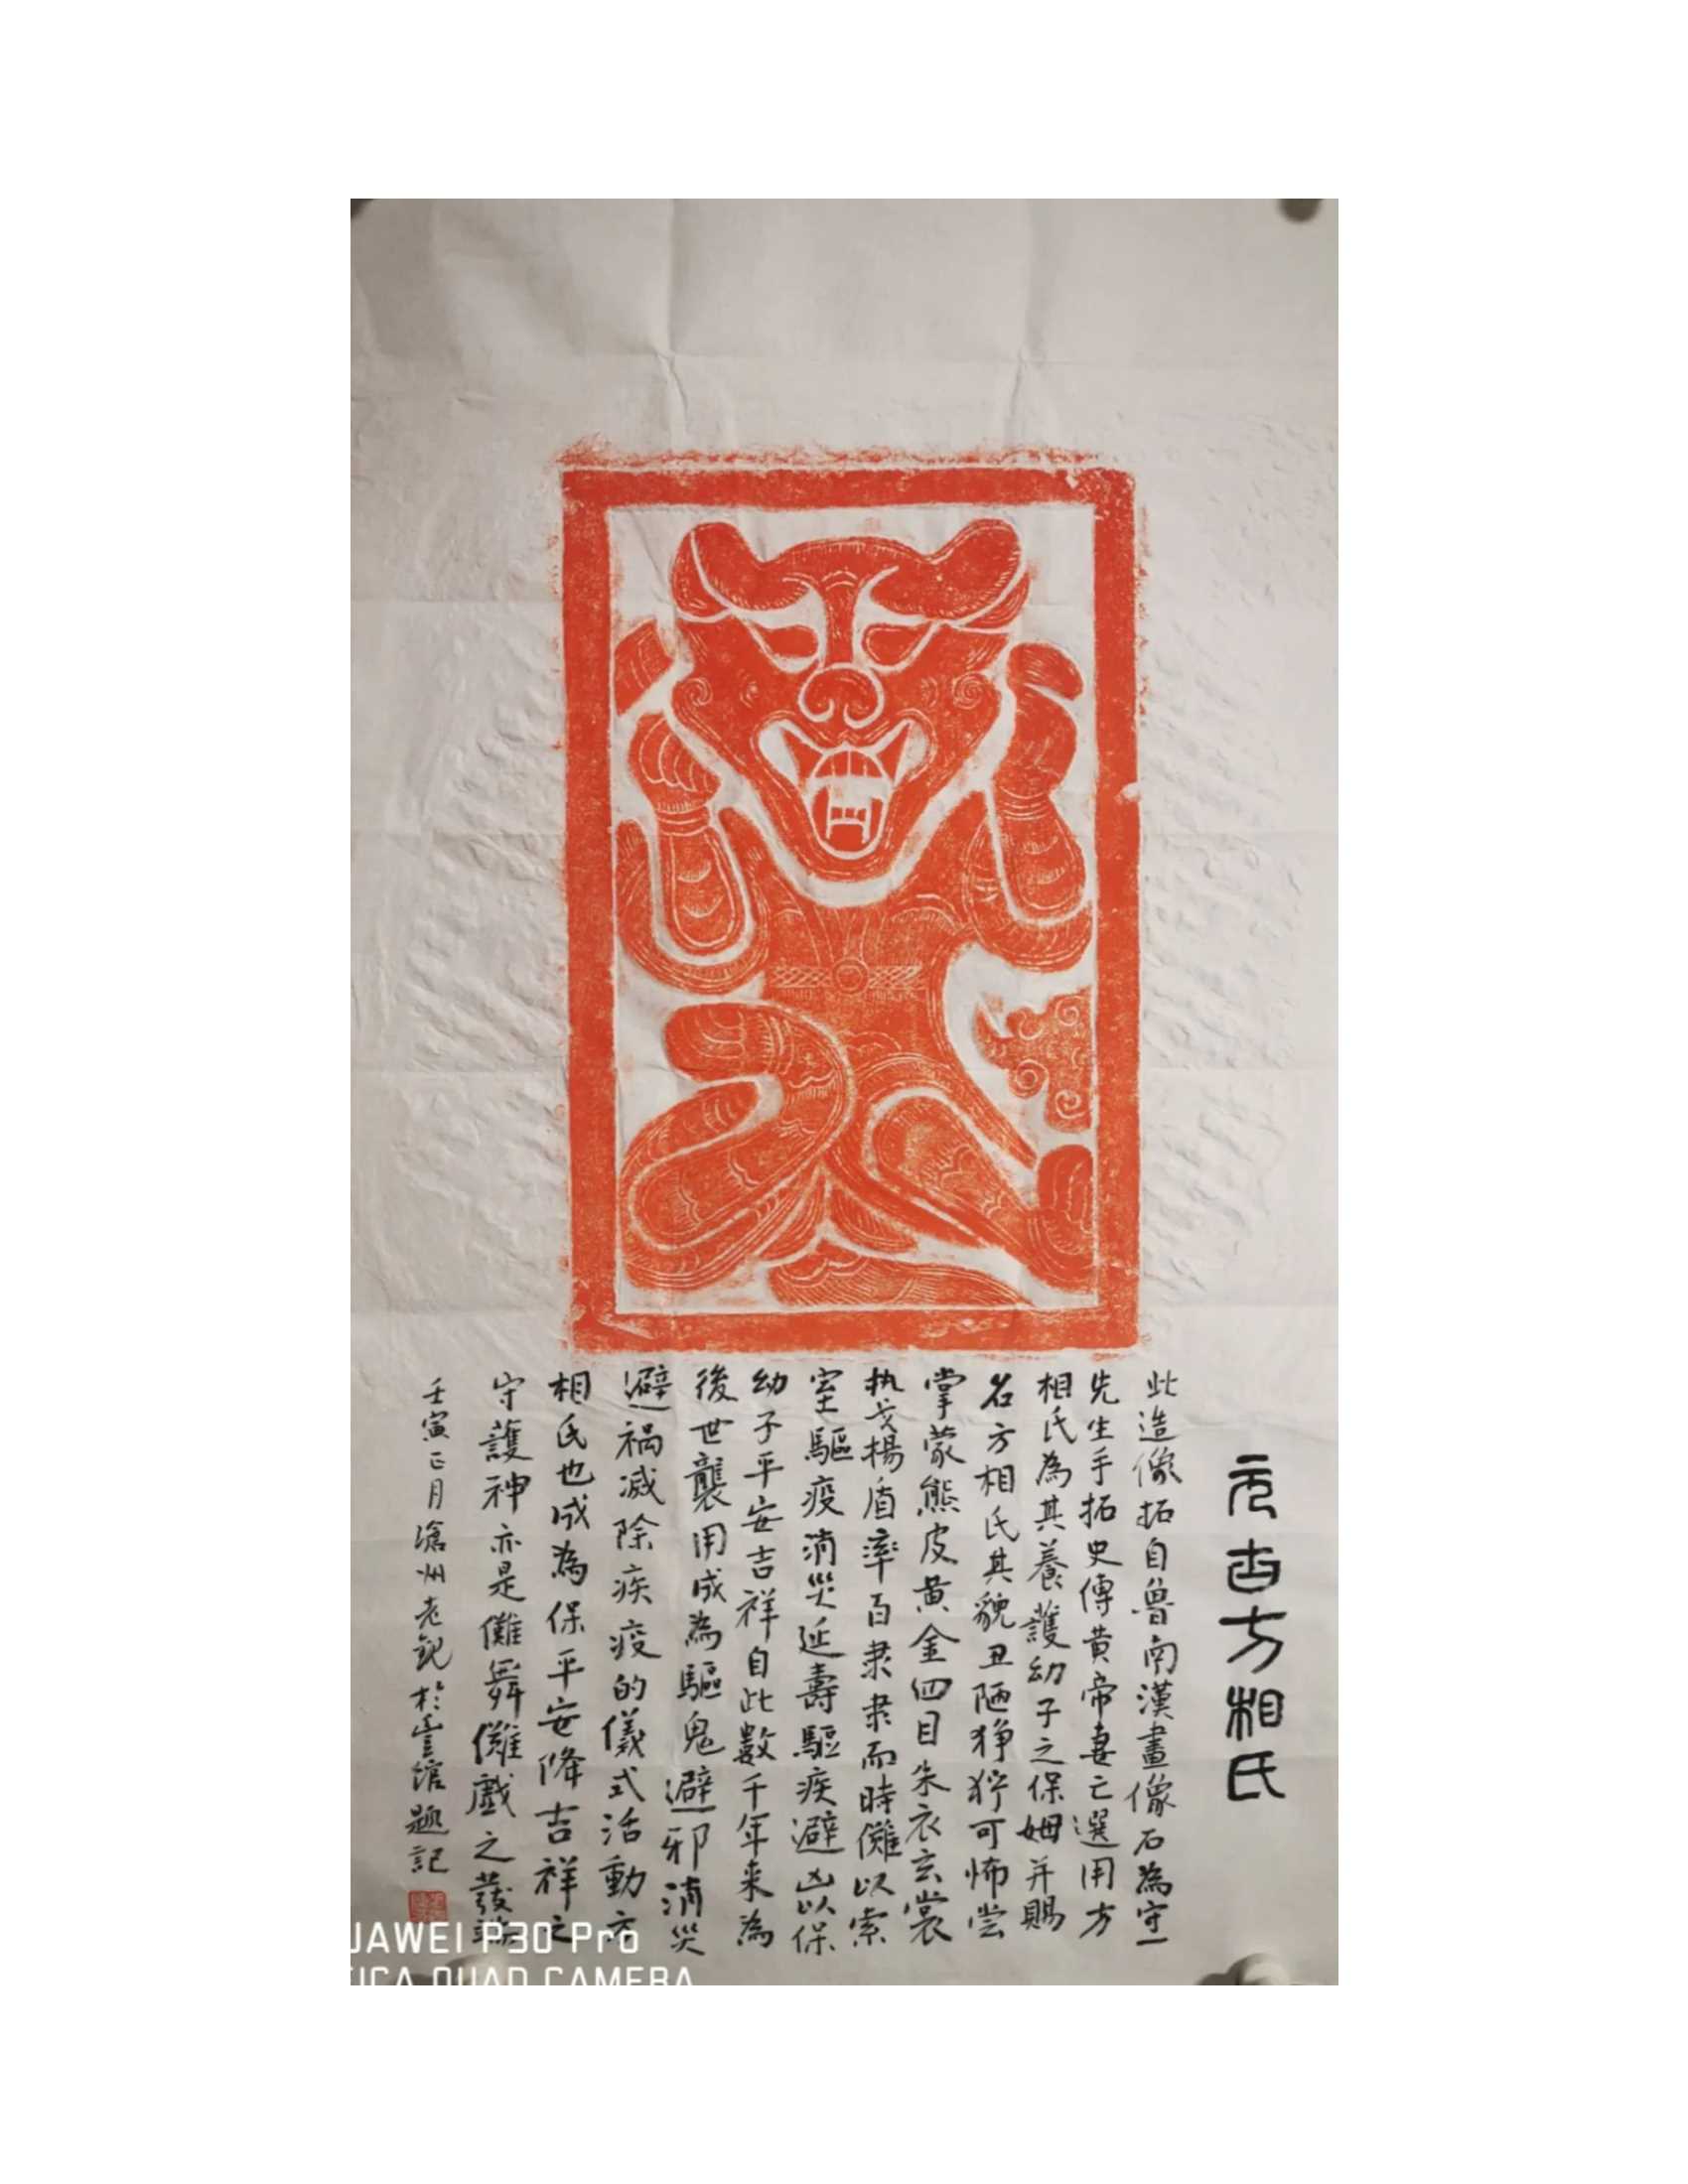 元古方相氏
此造像拓自魯南漢畫像石為守一
先生手拓史傳黄帝妻亡選用方
相氏為其養護幼子之保姆并賜
名方相氏其貌丑陋狰狞可怖尝
掌蒙熊皮黄金四目朱衣玄裳
执戈楊盾率百隶隶而時儺以索
室驅疫消災延壽驅疾避凶以保
幼子平安吉祥自此數千年来為
後世襲用成為驅鬼避邪消災
避祸减除疾疫的儀式活動方
相氏也成為保平安降吉祥之
守護神亦是儺舞儺戲之發端
壬寅正月滄州老 於 題記
UAWEI P30 Pro
ICA QUAD CAMERA